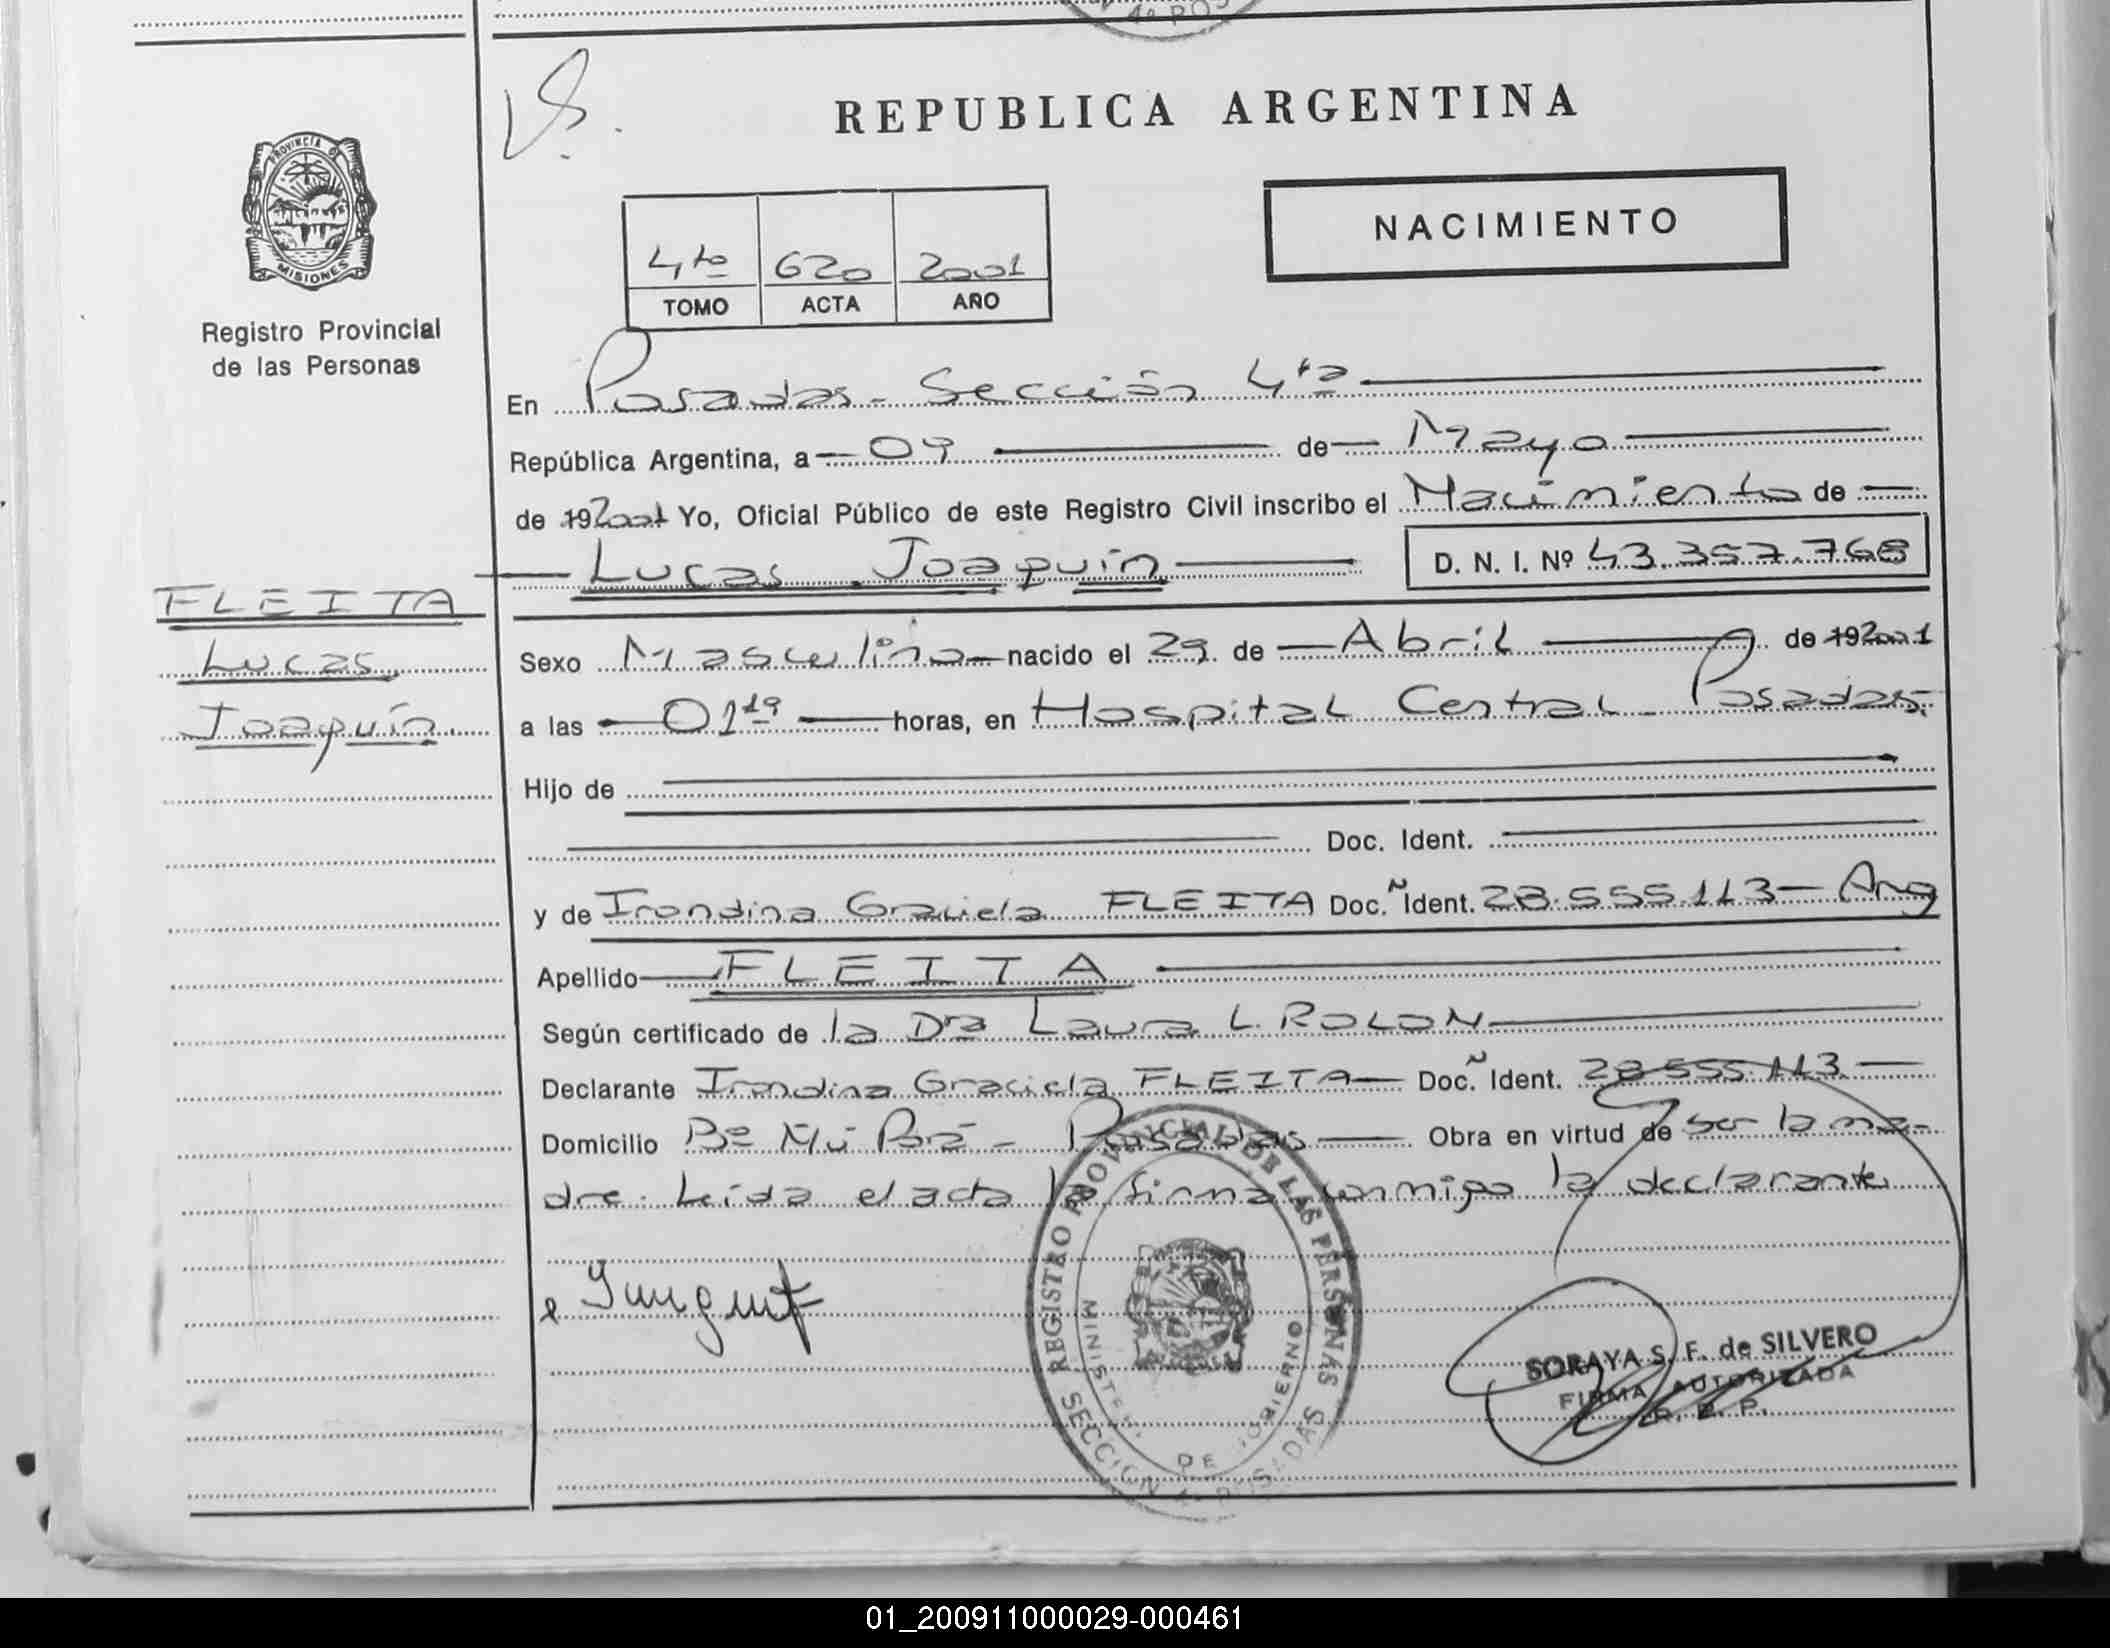 4º POS
REPUBLICA ARGENTINA
PROVINCIA DE
MISIONES
Registro Provincial
de las Personas
NACIMIENTO
4to 620 2001
TOMO ACTA AÑO
En Posadas - Sección 4ta
República Argentina, a 09 de Mayo
de 192001 Yo, Oficial Público de este Registro Civil inscribo el Nacimiento de
Lucas Joaquín D. N. I. Nº 43.357.768
FLEITA
Lucas
Joaquín.
Sexo Masculino nacido el 29 de Abril de 192001
a las 01 19 horas, en Hospital Central - Posadas.
Hijo de
Doc. Ident.
y de Irondina Graciela FLEITA Doc. Ident. 28.555.113 - Arg
Apellido FLEITA
Según certificado de la Dra Laura L. ROLON
Declarante Irondina Graciela FLEITA Doc. Ident. 28.555.113.
Domicilio Bº Ñu Porá - Posadas Obra en virtud de ser la ma-
dre. Leída el acta la firma conmigo la declarante
REGISTRO PROVINCIAL DE LAS PERSONAS
MINISTER. DE GOBIERNO
SECCION 4º POSADAS
SORAYA S. F. de SILVERO
FIRMA AUTORIZADA
R. P. P.
01_200911000029-000461